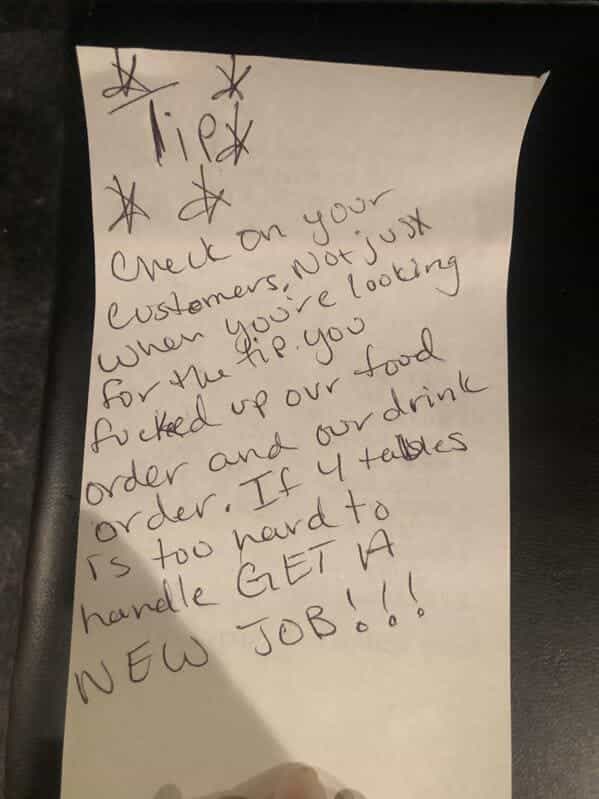 * *
Tip *
* *
Check on your
customers. Not just
when you're looking
for the tip. you
fucked up our food
order and our drink
order. If 4 tables
is too hard to
handle GET A
NEW JOB!!!